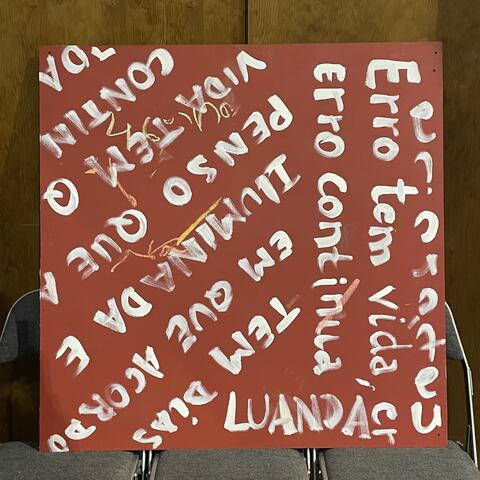 Erro tem vida, er
Erro continua
LUANDA
TEM DIAS
EM QUE ACORDO
ILUMINADA E
PENSO QUE A
VIDA TEM Q
CONTIN